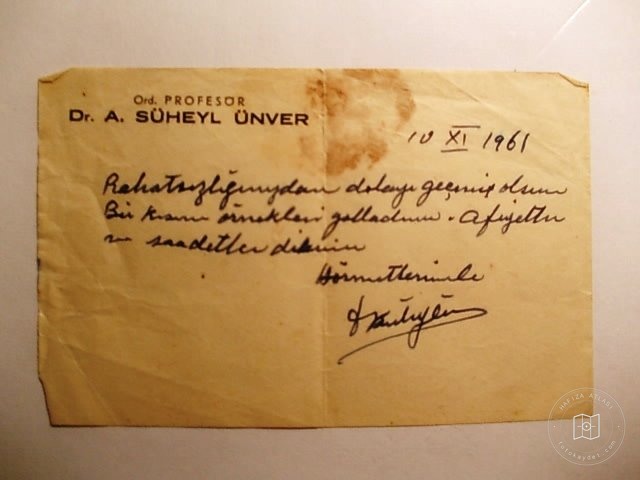 Ord. PROFESÖR
Dr. A. SÜHEYL ÜNVER
10 XI 1961
Rahatsızlığınızdan dolayı geçmiş olsun
Bir kısım örnekleri yolladım. Afiyetler
ve saadetler dilerim
Hürmetlerimle
HAFIZA ATLASI